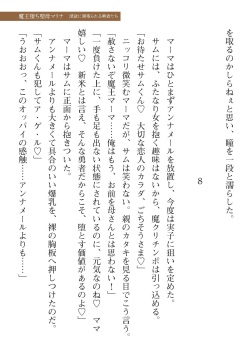 魔王堕ち聖母マリナ　淫獄に調教られる剣者たち
を取るのかしらねぇと思い、瞳を一段と濡らした。
8
マーマはひとまずアンナメールを放置し、今度は実子に狙いを定めた。
サムには、ふたなりの女を抱く趣味はないから、魔クリチンポは引っ込める。
「お待たせサムくん♡　大切な恋人のカラダ、ごちそうさま♡」
ニッコリ微笑むマーマだが、サムは笑わない。親のカタキを見る目でこう言う。
「赦さないぞ魔王マーマ……俺はもう、お前を母さんとは思わない！」
「一度負けた上に、手も足も出ない状態にされているのに、元気なのね♡　ママ
嬉しい♡　新米とは言え、そんな勇者だからこそ、堕とす価値があるのよ♡」
マーマはサムに正面から抱きついた。
アンナメールよりも大きくて具合のいい爆乳を、裸の胸板へ押しつけたのだ。
「サムくんも犯してア・ゲ・ル♡」
「うおおおっ、このオッパイの感触……アンナメールよりも……」